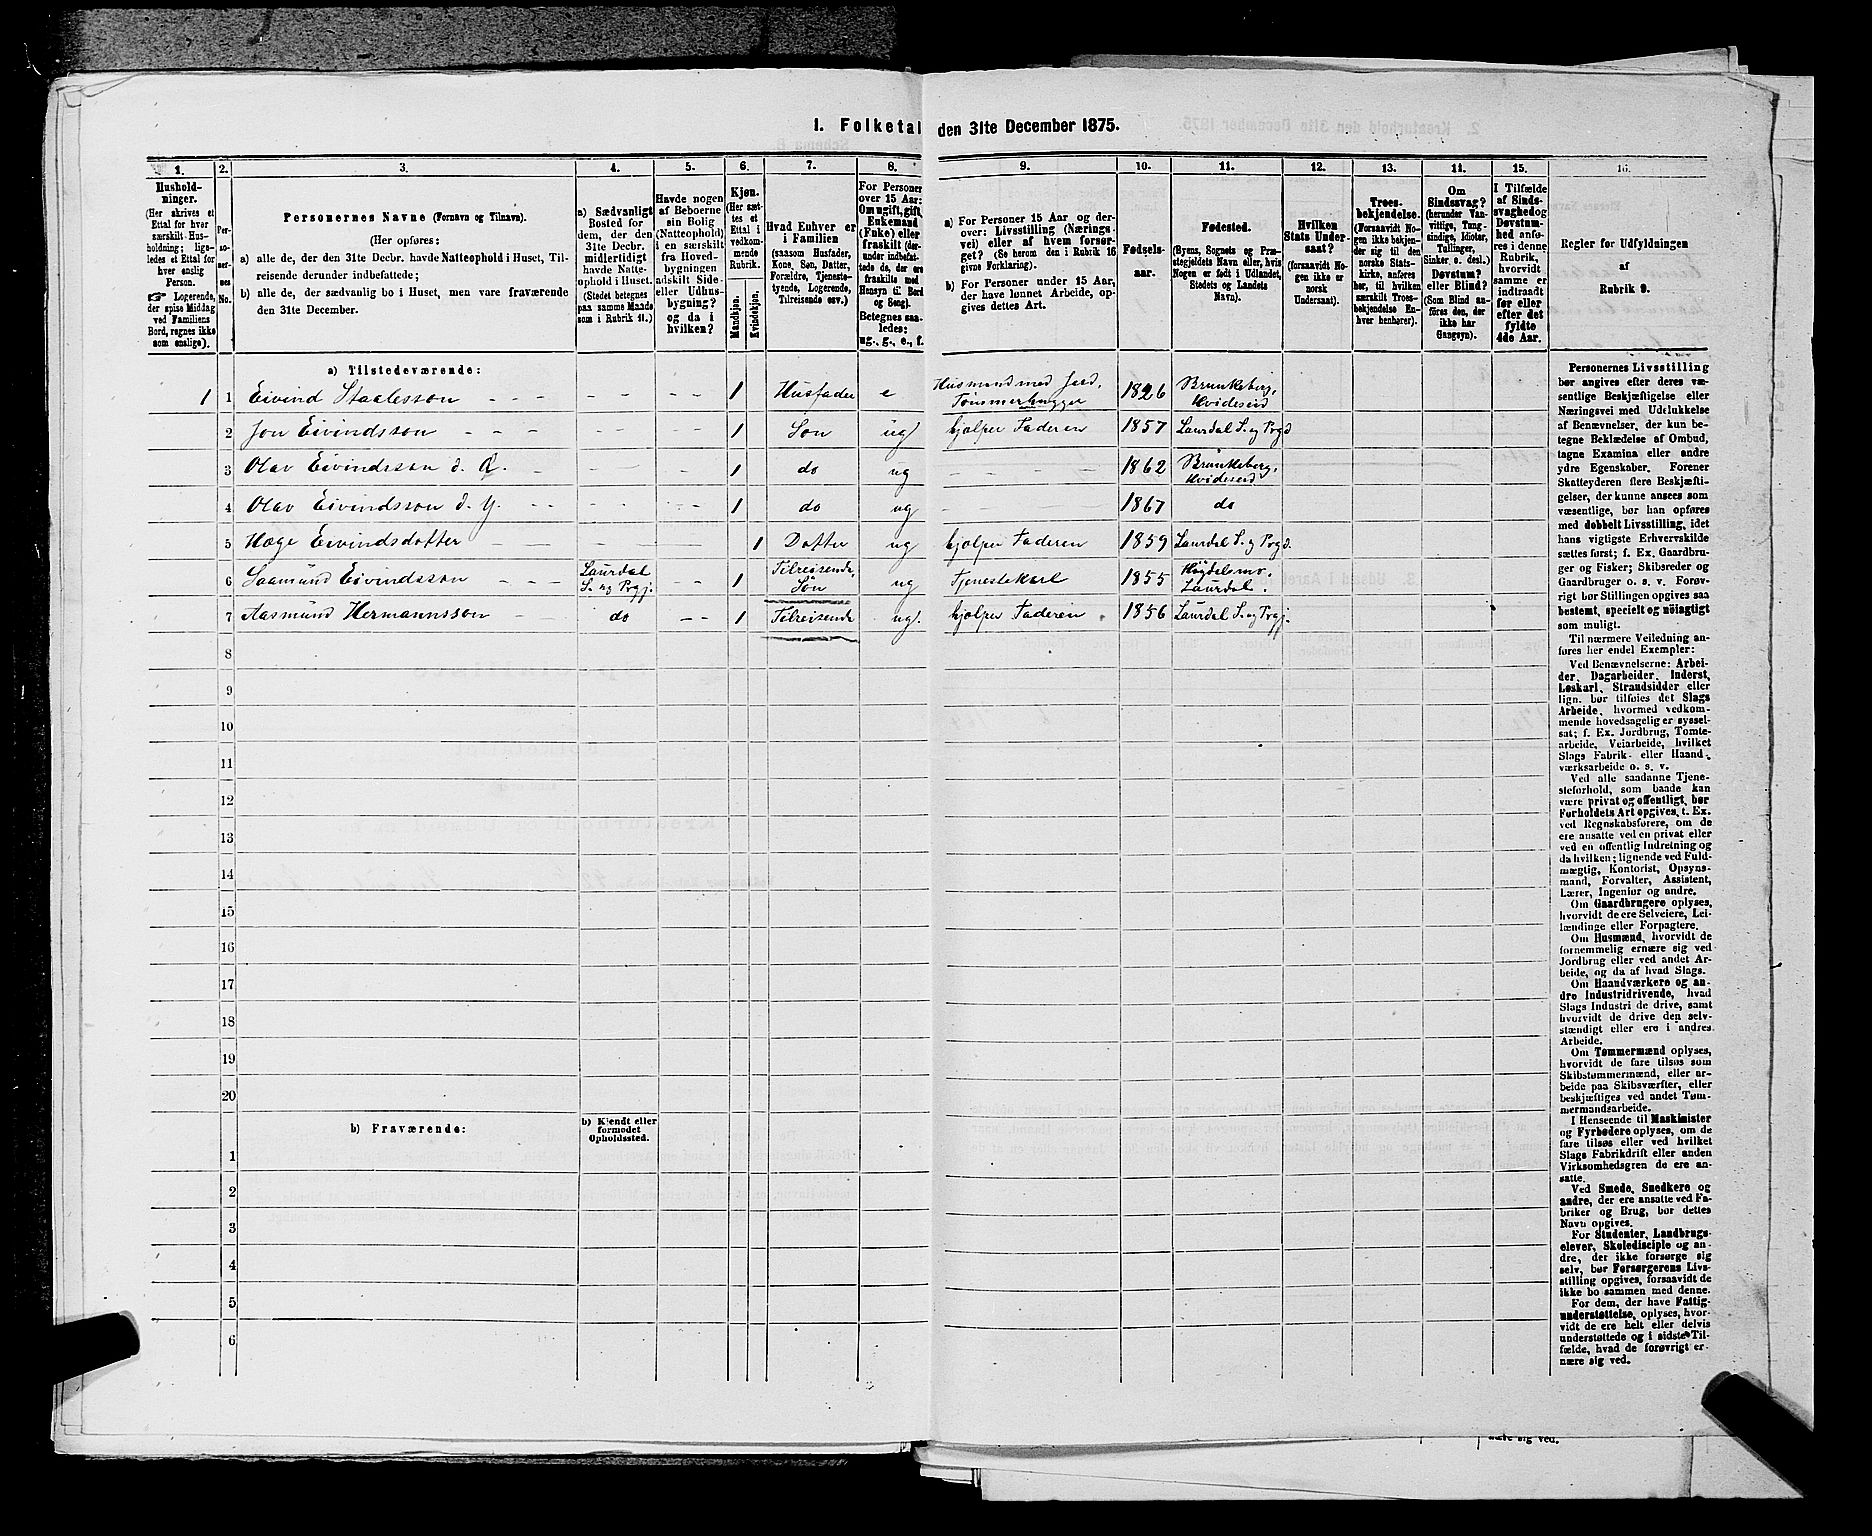 1. Folketal den 31te December 1875.
1. 2. 3. 4. 5. 6. 7. 8. 9. 10. 11. 12. 13. 14. 15. 16.
Hushold-
ninger.
(Her skrives et
Ettal for hver
særskilt Hus-
holdning; lige-
ledes et Ettal for
hver enslig
Person.
☞ Logerende,
der spise Middag
ved Familiens
Bord, regnes ikke
som enslige).
Per-
so-
ner-
nes
No.
Personernes Navne (Fornavn og Tilnavn).
(Her opføres:
a) alle de, der den 31te Decbr. havde Natteophold i Huset, Til-
reisende derunder indbefattede;
b) alle de, der sædvanlig bo i Huset, men vare fraværende
den 31te December.
a) Sædvanligt
Bosted for
dem, der den
31te Decbr.
midlertidigt
havde Natte-
ophold i Huset.
(Stedet betegnes
paa samme Maade
som i Rubrik 11.)
Havde nogen
af Beboerne
sin Bolig
(Natteophold)
i en særskilt
fra Hoved-
bygningen
adskilt Side-
eller Udhus-
bygning?
og da i
hvilken?
Kjøn.
(Her sæt-
tes et
Ettal i
vedkom-
mende
Rubrik.
Mandkjøn.
Kvindekjøn.
Hvad Enhver er
i Familien
(saasom Husfader,
Kone, Søn, Datter,
Forældre, Tjeneste-
tyende, Logerende,
Tilreisende osv.)
For Personer
over 15 Aar:
Om ugift, gift,
Enkemand
(Enke) eller
fraskilt (der-
under indbefat-
tede de, der ere
fraskilte med
Hensyn til Bord
og Seng).
Betegnes saa-
ledes:
ug., g., e., f.
a) For Personer 15 Aar og der-
over: Livsstilling (Nærings-
vei) eller af hvem forsør-
get? (Se herom den i Rubrik 16
givne Forklaring).
b) For Personer under 15 Aar,
der have lønnet Arbeide, op-
gives dettes Art.
Fødsels-
aar.
Fødested.
(Byens, Sognets og Præ-
stegjeldets Navn eller, hvis
Nogen er født i Udlandet,
Stedets og Landets
Navn).
Hvilken
Stats Under-
saat?
(forsaavidt No-
gen ikke er
norsk
Undersaat).
Troes-
bekjendelse.
(Forsaavidt No-
gen ikke bekjen-
der sig til den
norske Stats-
kirke, anføres
her, til hvilken
særskilt Troes-
bekjendelse En-
hver henhører).
Om
Sindssvag?
(herunder Van-
vittige, Tung-
sindige, Idioter,
Tullinger,
Sinker o. desl.)
Døvstum?
eller Blind?
(Som Blind an-
føres den, der
ikke har
Gangsyn).
I Tilfælde
af Sinds-
svaghed og
Døvstum-
hed anfø-
res i denne
Rubrik,
hvorvidt
samme er
indtraadt
før eller
efter det
fyldte
4de Aar.
Regler for Udfyldningen
af
Rubrik 9.
a) Tilstedeværende:
1 1 Eivind Staalesson 1 Husfader e Husmand med Jord, Tømmerhugger 1826 Brunkeberg, Hvideseid
2 Jon Eivindsson 1 Søn ug hjælper Faderen 1857 Laurdal S. og Prgd
3 Olav Eivindsson d. Æ. 1 do ug 1862 Brunkeberg, Hvideseid
4 Olav Eivindsson d. Y. 1 do ug 1867 do
5 Hæge Eivindsdotter 1 Dotter ug hjælper Faderen 1859 Laurdal S. og Prgd.
6 Saamund Eivindsson Laurdal S. og Prgj. 1 Tilreisende, Søn ug Tjenestekarl 1855 Høydalsmo, Laurdal.
7 Aasmund Hermannsson do 1 Tilreisende ug. hjælper Faderen 1856 Laurdal S. og Prgj.
8
9
10
11
12
13
14
15
16
17
18
19
20
b) Fraværende:
b) Kjendt eller
formodet
Opholdssted.
1
2
3
4
5
6
Personernes Livsstilling
bør angives efter deres væ-
sentlige Beskjæftigelse eller
Næringsvei med Udelukkelse
af Benævnelser, der kun be-
tegne Beklædelse af Ombud,
tagne Examina eller andre
ydre Egenskaber. Forener
Skatteyderen flere Beskjæfti-
gelser, der kunne ansees som
væsentlige, bør han opføres
med dobbelt Livsstilling, idet
hans vigtigste Erhvervskilde
sættes først; f. Ex. Gaardbru-
ger og Fisker; Skibsreder og
Gaardbruger o. s. v. Forøv-
rigt bør Stillingen opgives saa
bestemt, specielt og nöiagtigt
som muligt.
Til nærmere Veiledning an-
føres her endel Exempler:
Ved Benævnelserne: Arbei-
der, Dagarbeider, Inderst,
Løskarl, Strandsidder eller
lign. bør tilføies det Slags
Arbeide, hvormed vedkom-
mende hovedsagelig er syssel-
sat; f. Ex. Jordbrug, Tomte-
arbeide, Veiarbeide, hvilket
Slags Fabrik- eller Haand-
værksarbeide o. s. v.
Ved alle saadanne Tjene-
steforhold, som baade kan
være privat og offentligt, bør
Forholdets Art opgives, t. Ex.
ved Regnskabsførere, om de
ere ansatte ved en privat eller
ved en offentlig Indretning og
da hvilken; lignende ved Fuld-
mægtig, Kontorist, Opsyns-
mand, Forvalter, Assistent,
Lærer, Ingeniør og andre.
Om Gaardbrugere oplyses,
hvorvidt de ere Selveiere, Lei-
lændinge eller Forpagtere.
Om Husmænd, hvorvidt de
fornemmelig ernære sig ved
Jordbrug eller ved andet Ar-
beide, og da af hvad Slags.
Om Haandværkere og an-
dre Industridrivende, hvad
Slags Industri de drive, samt
hvorvidt de drive den selv-
stændigt eller ere i andres
Arbeide.
Om Tømmermænd oplyses,
hvorvidt de fare tilsøs som
Skibstømmermænd, eller ar-
beide paa Skibsværfter, eller
beskjæftiges ved andet Tøm-
mermandsarbeide.
I Henseende til Maskinister
og Fyrbødere oplyses, om de
fare tilsøs eller ved hvilket
Slags Fabrikdrift eller anden
Virksomhedsgren de ere an-
satte.
Ved Smede, Snedkere og
andre, der ere ansatte ved Fa-
briker og Brug, bør dettes
Navn opgives.
For Studenter, Landbrugs-
elever, Skoledisciple og an-
dre, der ikke forsørge sig
selv, bør Forsørgerens Livs-
stilling opgives, forsaavidt de
ikke bo sammen med denne.
For dem, der have Fattig-
understøttelse, oplyses, hvor-
vidt de ere helt eller delvis
understøttede og i sidste Til-
fælde, hvad de forøvrigt er-
nære sig ved.